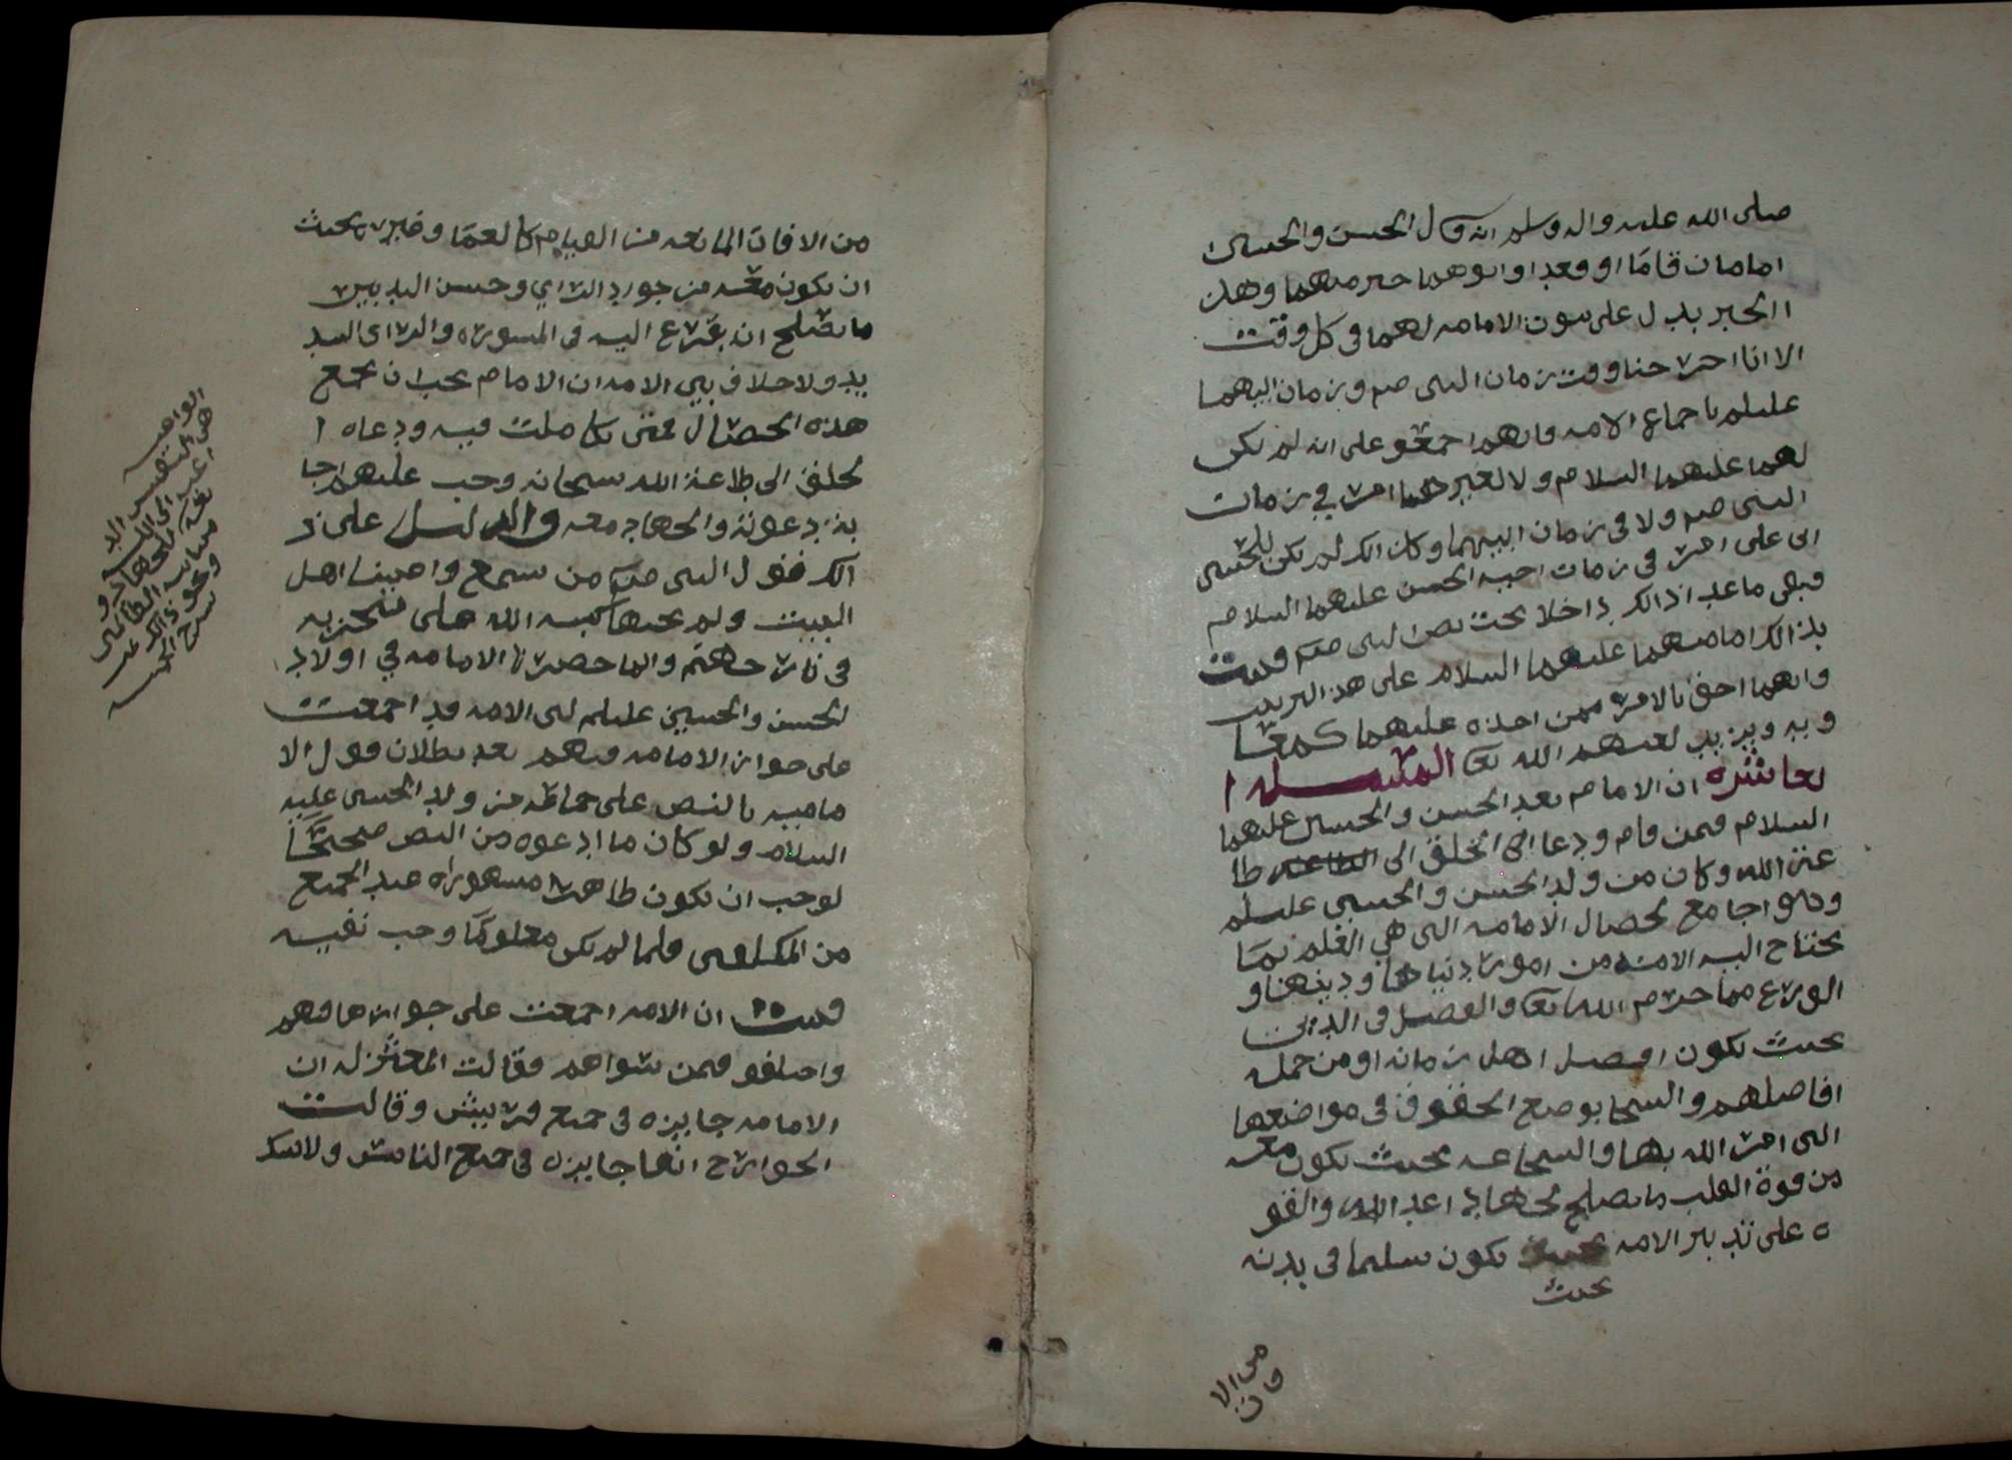 صلى الله عليه واله وسلم انه قال الحسن والحسين
امامان قاما او قعدا وابوهما خير منهما وهذ
االخبر يدل على ثبوت الامامه لهما في كل وقت
الا انا اخرجنا وقت زمان النبي صلم وزمان ابيهما
عليلم باجماع الامه فانهم اجمعو على انه لم يكن
لهما عليهما السلام ولا لغيرهما امر في زمان
النبي صلم ولا في زمان ابيهما وكذالك لم يكن للحسين
ابن علي امر في زمان اخيه الحسن عليهما السلام
فبقى ما عدا ذالك داخلا تحت نص النبي صلم فثبت
بذالك امامتهما عليهما السلام على هذا الترتيب
وانهما احق بالامر ممن اخذه عليهما كمعا
ويه ويزيد لعنهم الله تعا المسله ا
لعاشره ان الامام بعد الحسن والحسين عليهما
السلام فمن قام ودعا الخلق الى الطاعه طا
عة الله وكان من ولد الحسن والحسين عليلم
وهو اجامع لخصال الامامه التي هي العلم بما
يحتاج اليه الامه من امور دنياها ودينها و
الورع مما حرم الله تعا والفضل في الدين
بحيث يكون افضل اهل زمانه او من جمله
افاضلهم والسخا بوضع الحقوق في مواضعها
التي امر الله بها والشجاعه بحيث يكون معه
من قوة القلب ما يصلح لجهاد اعدا الله والقو
ه على تدبير الامه بحيث يكون سليما في بدنه
بحيث
من الا
فات
من الافات المانعه من القيام كالعما وغيره بحيث
ان يكون معه من جودة الراي وحسن التدبير
ما يصلح ان يفزع اليه في المشوره والراي السد
يد ولا خلاف بين الامه ان الامام يجب ان يجمع
هذه الخصال فمتى تكاملت فيه ودعاه ا
لخلق الى طاعة الله سبحانه وجب عليهم اجا
بة دعوته والجهاد معه والدليل على ذ
الك فقول النبي صلم من سمع واعيتنا اهل
البيت ولم يجبها كبه الله على منخريه
في نار جهنم وانما حصرنا الامامه في اولاد
لحسن والحسين عليلم لان الامه قد اجمعت
على جواز الامامه فيهم بعد بطلان قول الا
ماميه بالنص على جماعه من ولد الحسين عليه
السلام ولو كان ما ادعوه من النص صحيحا
لوجب ان يكون ظاهرا مشهورا عند الجميع
من المكلفين فلما لم يكن معلوما وجب نفيه
فثبت ان الامه اجمعت على جوازها فيهم
واختلفو فيمن سواهم فقالت المعتزله ان
الامامه جايزه في جميع قريش وقالت
الخوارج انها جايزه في جميع الناس ولا بد
الواعيه
هي النفس الد
اعيه الى الله